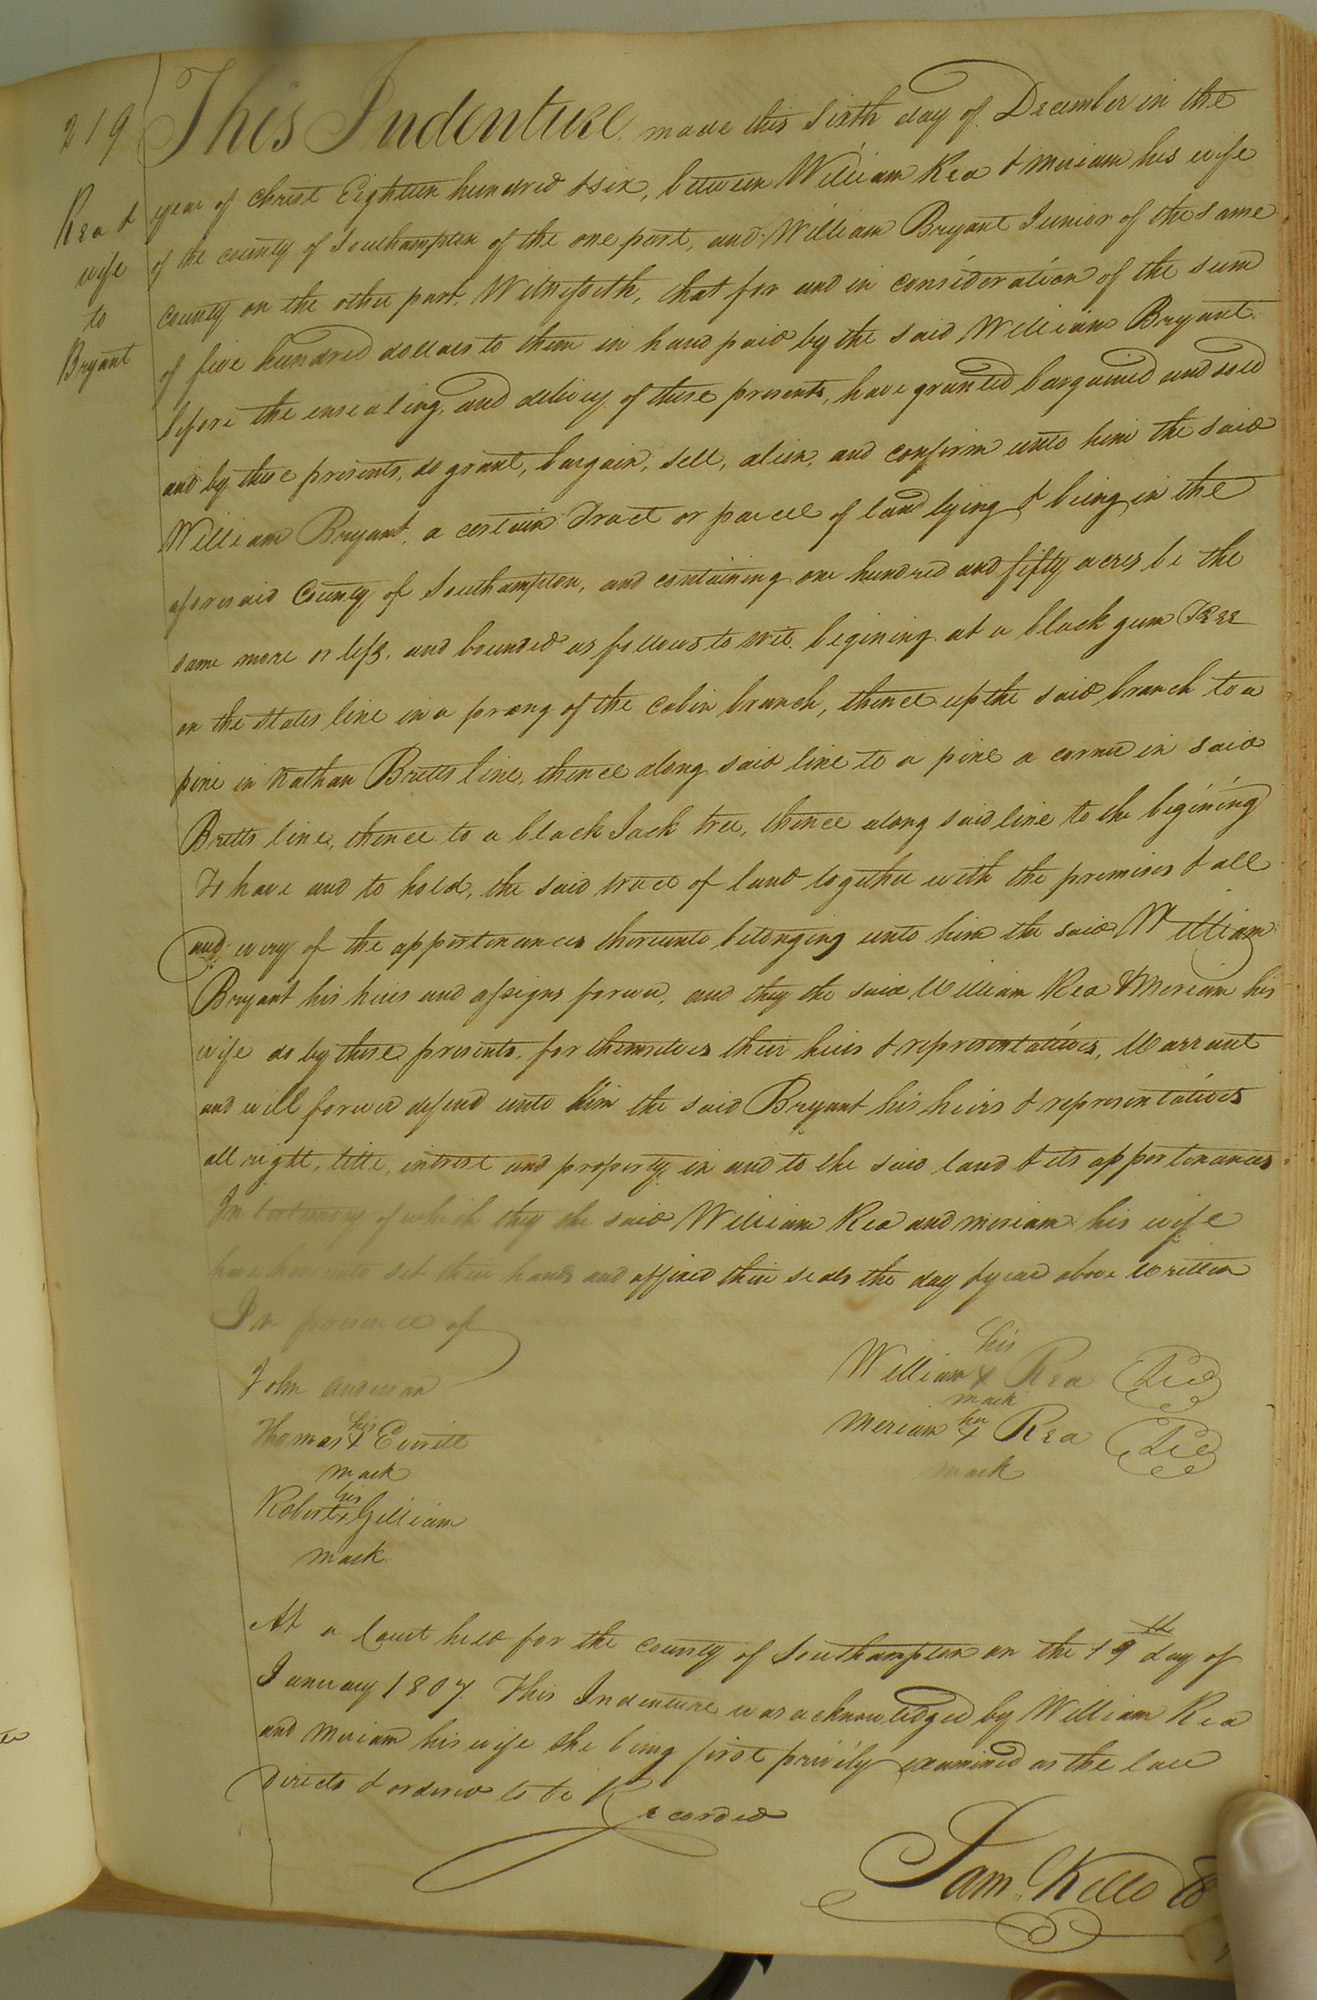 219
Rea &
wife
to
Bryant
This Indenture, made this sixth day of December in the
year of christ Eighteen hundred & six, between William Rea & Meriam his wife
of the county of Southampton of the one part, and William Bryant Junior of the same
county on the other part, Witnesseth, that for and in consideration of the sum
of five hundred dollars to them in hand paid by the said William Bryant
before the ensealing, and delivery of these presents, have granted bargained and sold
and by these presents, do grant, bargain, sell, alien, and confirm unto him the said
William Bryant, a certain Tract or parcel of land lying & being in the
aforesaid County of Southampton, and containing one hundred and fifty acres be the
same more or less, and bounded as follows to wit. begining at a black gum Tree
on the States line in a prong of the cabin branch, thence up the said branch to a
pine in Nathan Britts line, thence along said line to a pine a corner in said
Britts line, thence to a black Jack tree, thence along said line to the begining
To have and to hold, the said tract of land together with the premises & all
and every of the appertinances thereunto belonging unto him the said William
Bryant his heirs and assigns forever, and they the said William Rea & Meriam his
wife do by these presents, for themselves their heirs & representatives, Warrant
and will forever defend unto him the said Bryant his heirs & representatives
all right, title, interest and property in and to the said land & its appertinances
In testimony of which they the said William Rea and Meriam his wife
have hereunto set their hands and affixed their seals the day & year above written
In presence of
John Anderson
Thomas his x Everitt
mark
Robert his x Gilliam
mark
his
William x Rea Seal
mark
Meriam her x Rea Seal
mark
At a Court held for the county of Southampton on the 19th day of
January 1807. This Indenture was acknowledged by William Rea
and Meriam his wife she being first privily examined as the law
directs & ordered to be Recorded
Sam. Kello